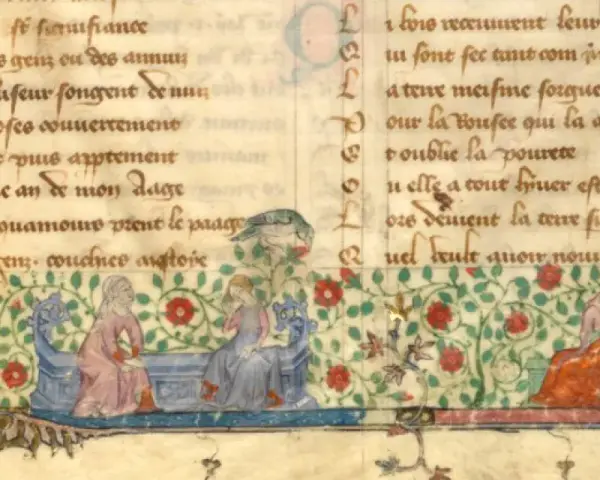 st senefiance
genz ou des annuiz
songent de nuiz
oses couuertement
puis appertement
e an de mon Aage
quamours prent le paage
genz couchies
L i bois recueurent leur
Q ui sont sec tant com
L a terre meisme sorgue
P our la Rousee qui la
E t oublie la pourete
O u elle a tout hiuer est
L ors deuient la terre si
Q uel veult auoir nouu